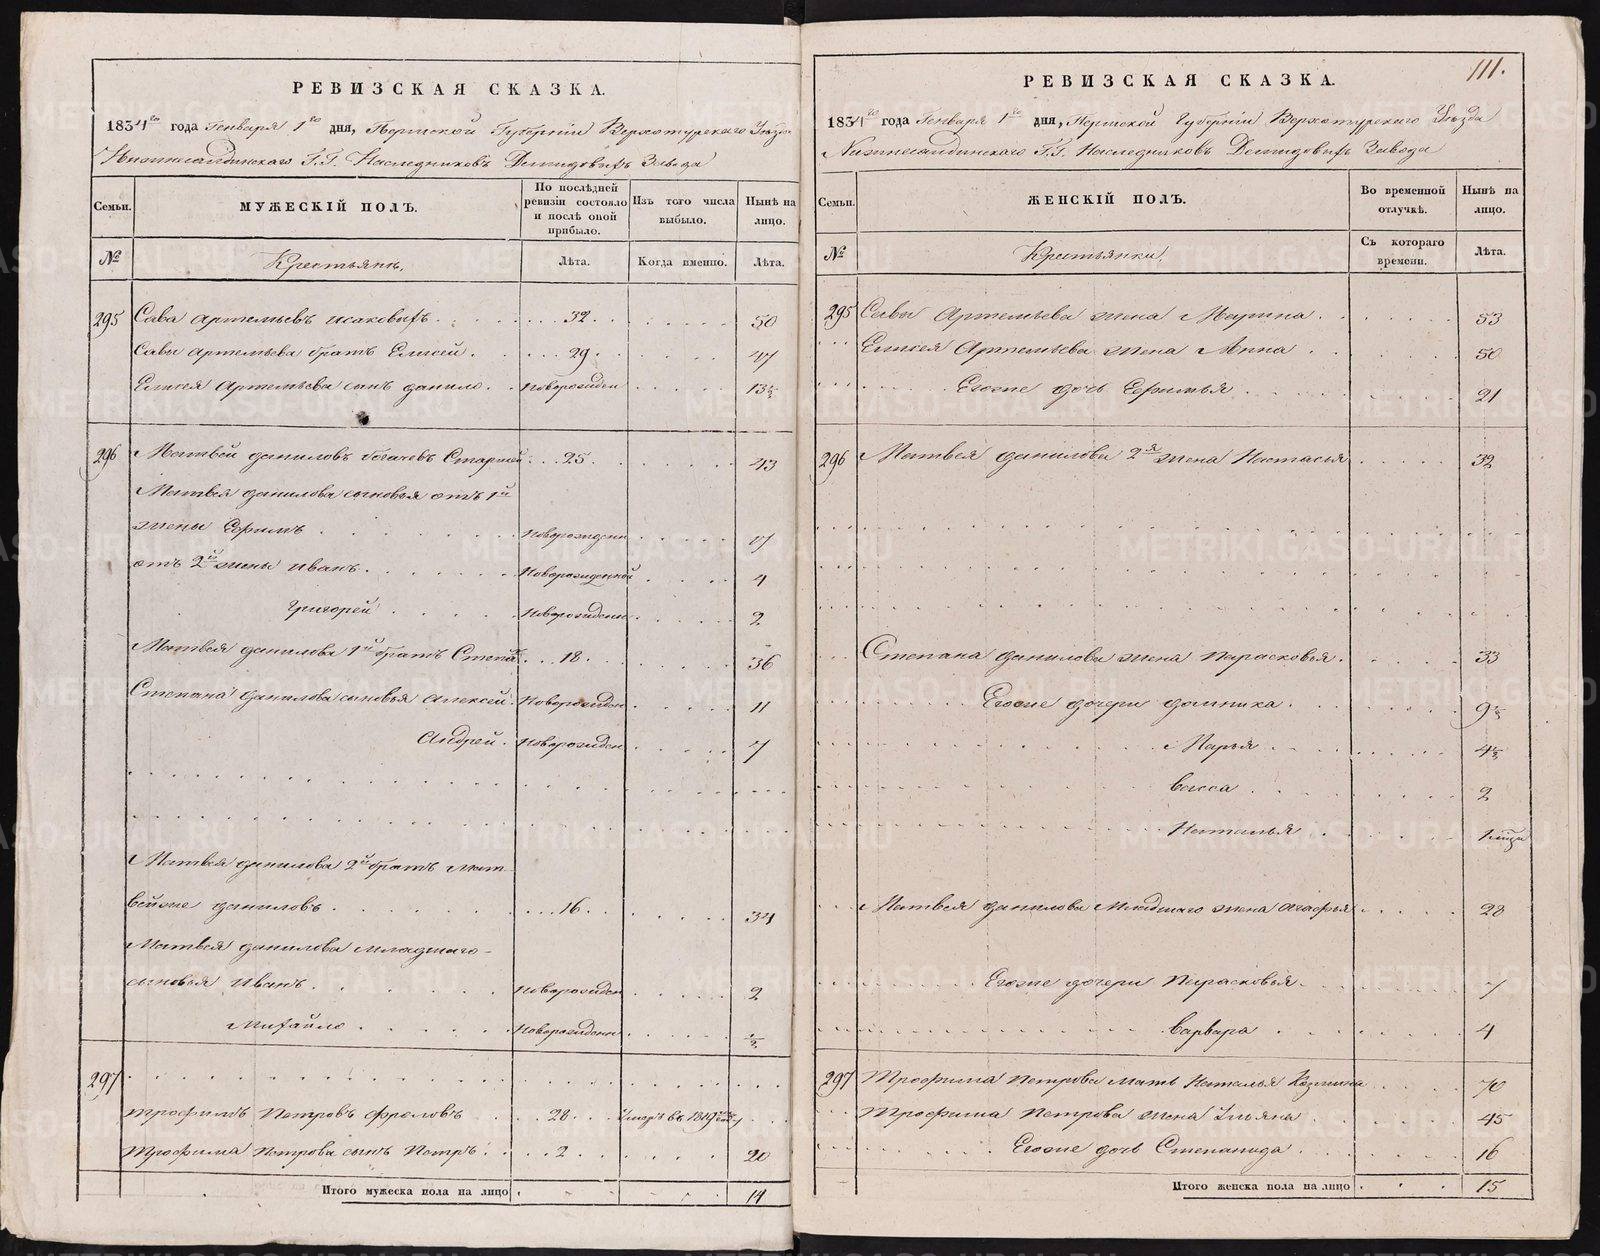 РЕВИЗСКАЯ СКАЗКА.
1834го года Генваря 1го дня, Пермской Губернiи Верхотурскаго Уѣзда
Нижнесалдинскаго Г.Г. Наследниковъ Демидовыхъ Завода
Семьи. МУЖЕСКIЙ ПОЛЪ. По послѣдней ревизiи состояло и послѣ оной прибыло. Изъ того числа выбыло. Нынѣ на лицо.
№ Крестьянъ, Лѣта. Когда именно. Лѣта.
295 Сава Артемьевъ Исаковыхъ 32. 50
Савы Артемьева братъ Елисей 29. 47
Елисея Артемьева сынъ данило новорожден 13½
296 Матвей даниловъ богачевъ Старшей 25. 43
Матвея данилова сыновья отъ 1й
жены Ефимъ новорожден 17
отъ 2й жены иванъ новорожденной 4
григорей новорожденн 2
Матвея данилова 1й братъ Степанъ 18. 36
Степана данилова сыновья алексей новорожден 11
Андрей новорожден 7
Матвея данилова 2й братъ мат-
вейже даниловъ 16. 34
Матвея данилова младшаго
сыновья иванъ новорожден 2
михайло новорожденн ½
297
трофимъ Петровъ фроловъ 28 умеръ в 1819
трофима петрова сынъ Петръ 2 20
Итого мужеска пола на лицо 14
111.
РЕВИЗСКАЯ СКАЗКА.
1834го года Генваря 1го дня, Пермской Губернiи Верхотурскаго Уѣзда
Нижнесалдинскаго Г.Г. Наследниковъ Демидовыхъ Завода
Семьи. ЖЕНСКIЙ ПОЛЪ. Во временной отлучкѣ. Нынѣ на лицо.
№ Крестьянки, Съ котораго времени. Лѣта.
295 Савы Артемьева жена Марина 53
Елисея Артемьева жена Анна 50
Егоже дочь Ефимья 21
296 Матвея данилова 2я жена Настасья 32
Степана данилова жена парасковья 33
Егоже дочери домника 9½
Марья 4½
васса 2
Наталья
Матвея данилова Младшаго жена агафья 28
Егоже дочери Парасковья 7
варвара 4
297 трофима петрова мать Наталья Козмина 70
трофима петрова жена Ульяна 45
Егоже дочь Степанида 16
Итого женска пола на лицо 15
METRIKI.GASO-URAL.RU